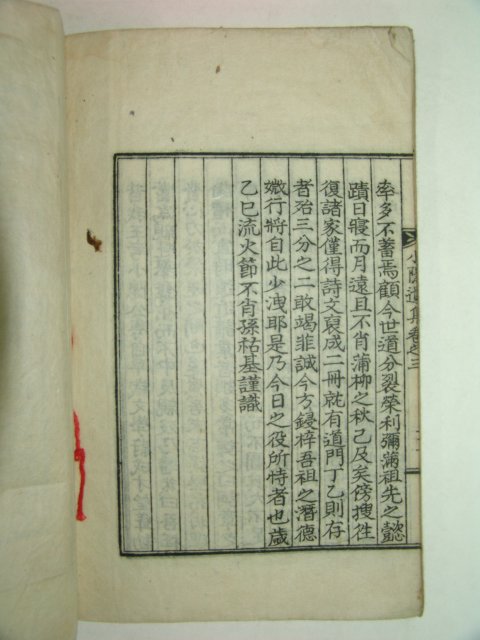 小隱遺集卷之三
率多不蓄焉顧今世道分裂榮利彌滿祖先之懿
蹟日寢而月遠且不肖蒲柳之秋已及矣傍搜徃
復諸家僅得詩文裒成二冊就有道門丁乙則存
者殆三分之二敢竭菲誠今方鋟梓吾祖之潛德
媺行將自此少洩耶是乃今日之役所恃者也歲
乙巳流火節不肖孫祜基謹識